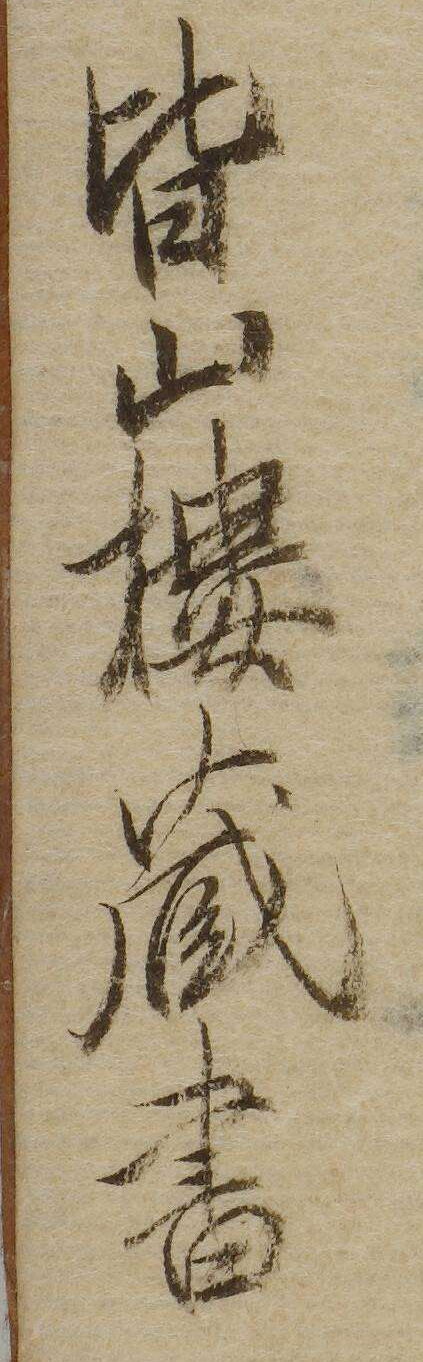 皆山樓藏書